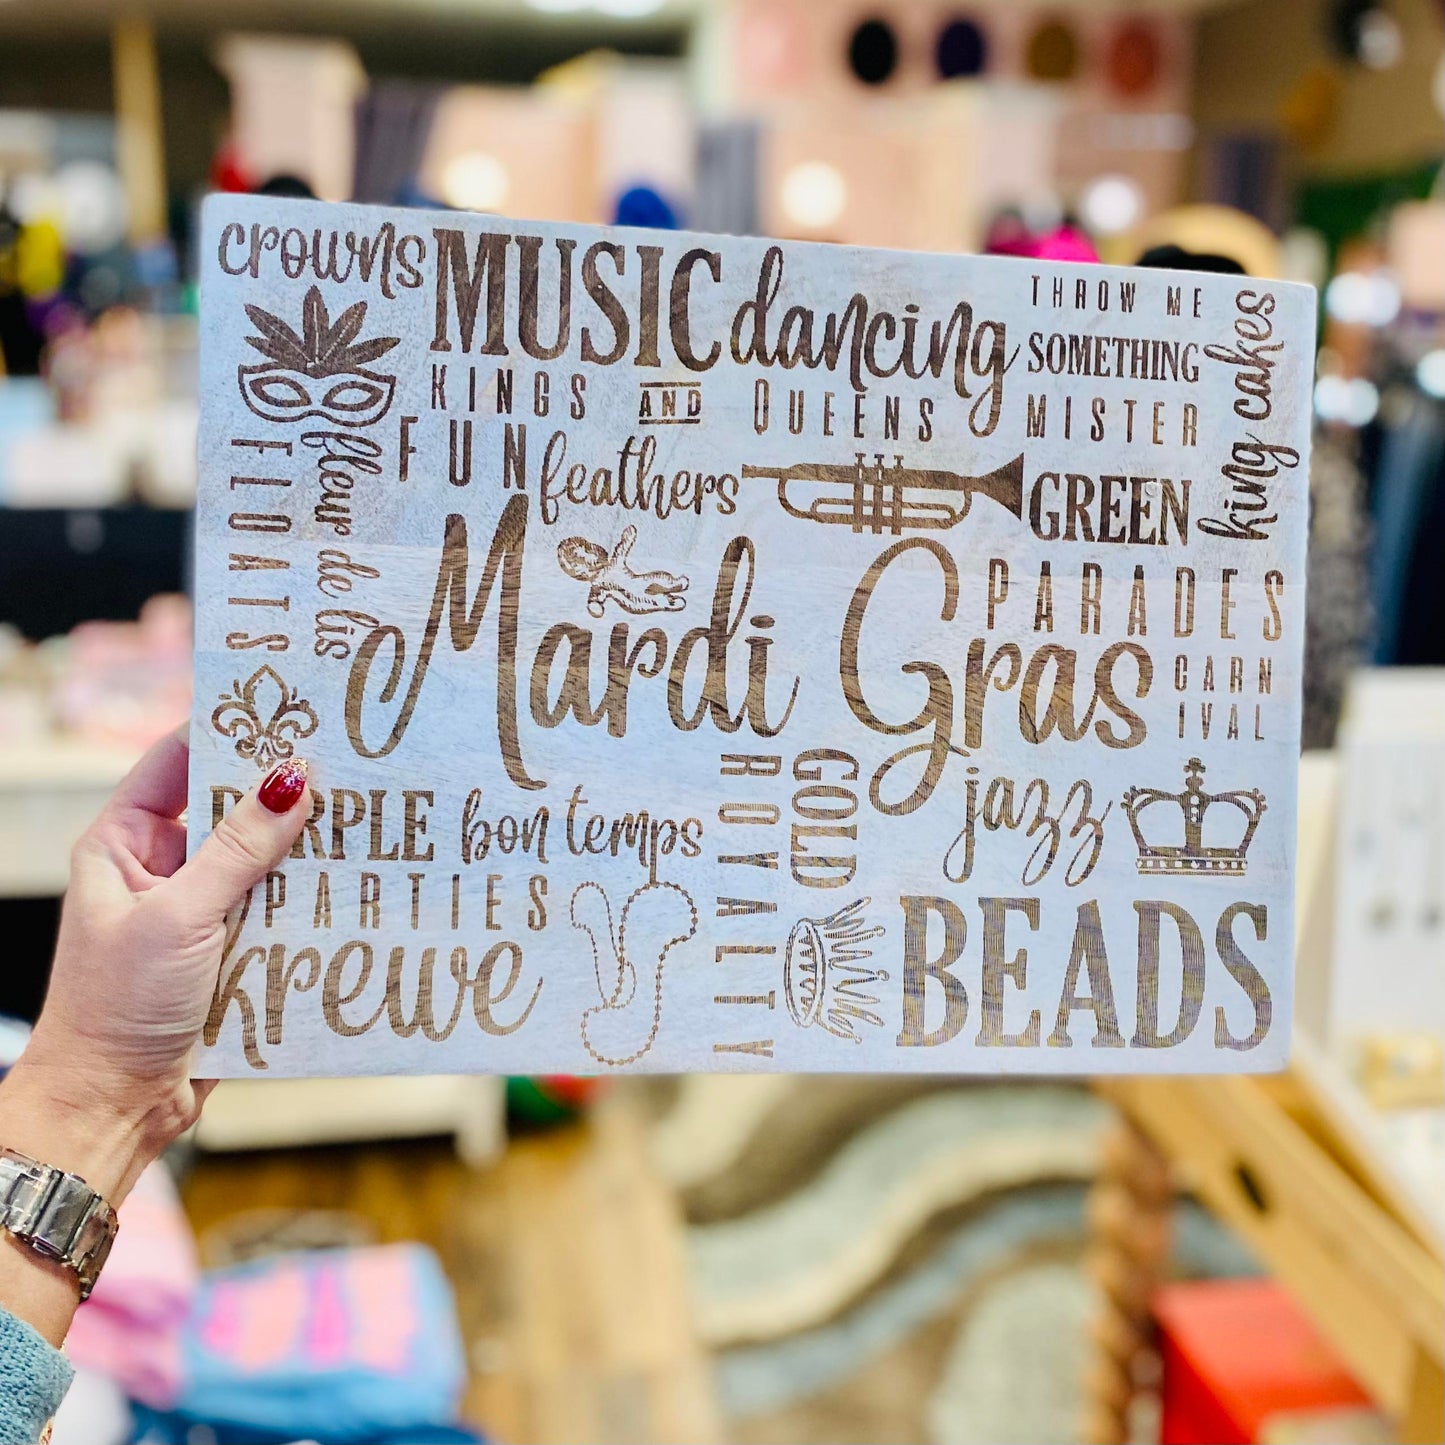 crowns
MUSIC
dancing
THROW ME
SOMETHING
MISTER
king cakes
KINGS AND QUEENS
FUN
feathers
GREEN
FLOATS
fleur de lis
Mardi Gras
PARADES
CARN
IVAL
PURPLE
bon temps
ROYALTY
GOLD
jazz
PARTIES
krewe
BEADS